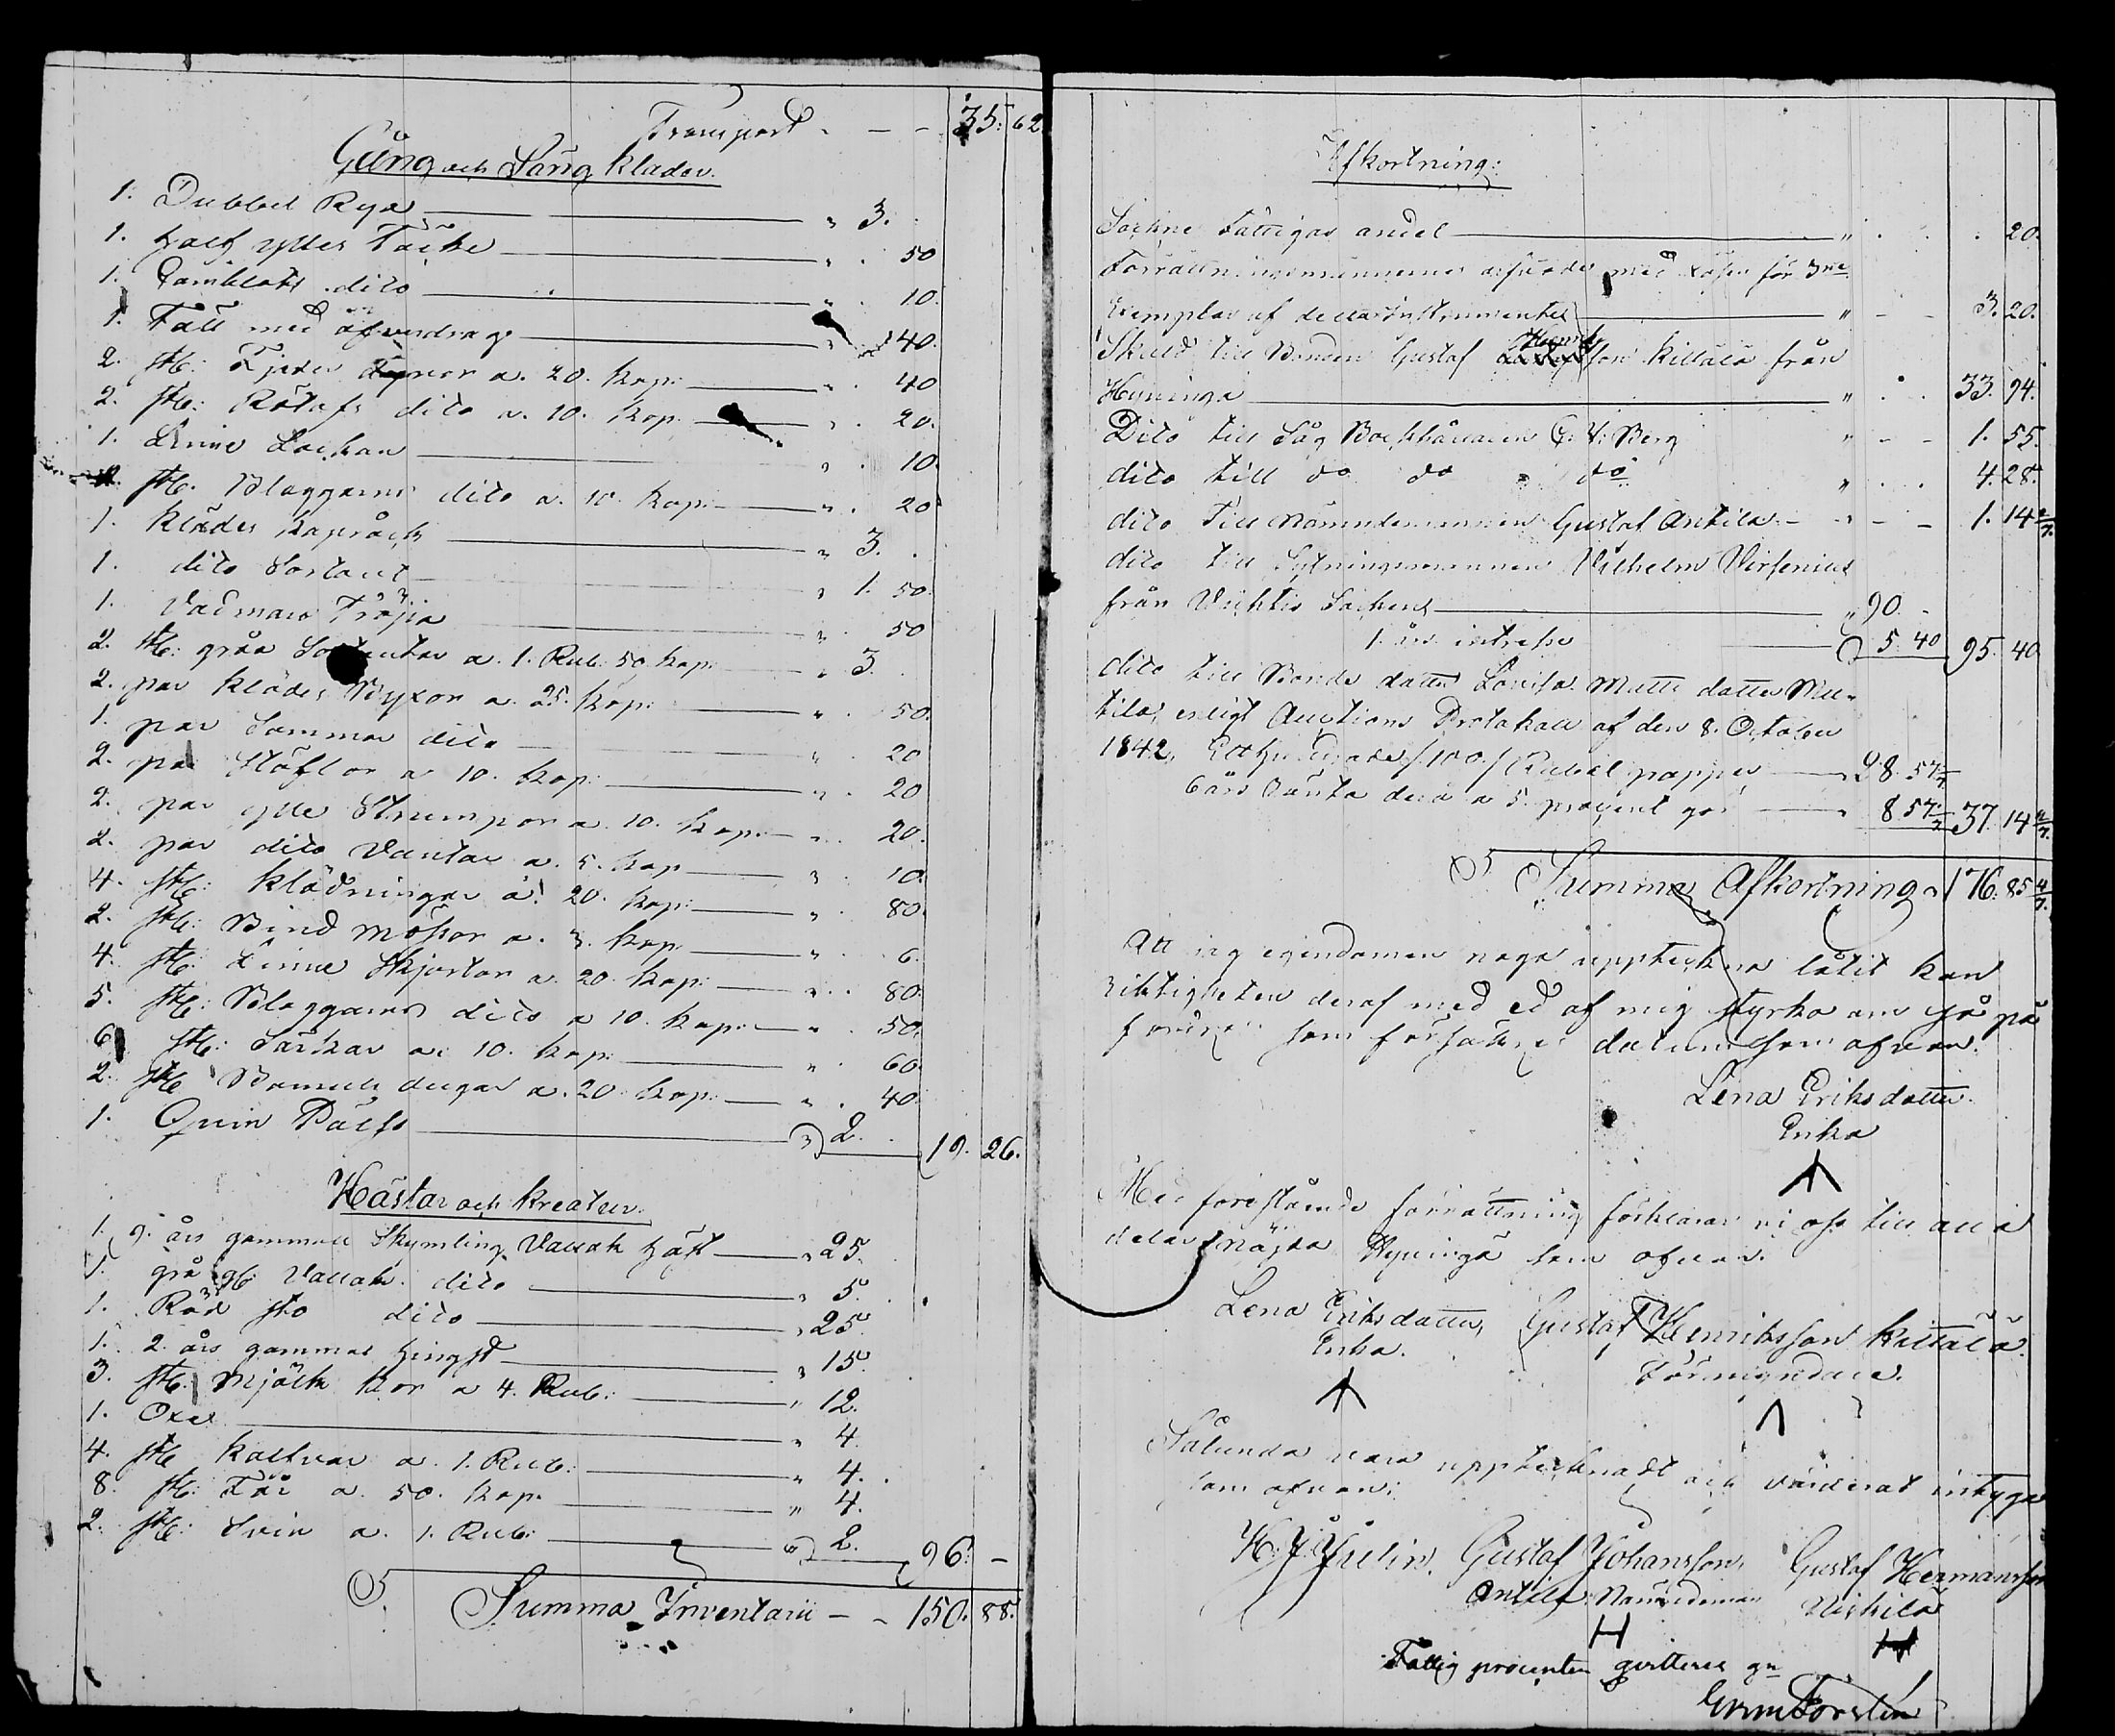 Transport " — — 35. 62
Gång och Säng kläder.
1. Dubbel Rya " 3.
1. half ylles Täcke " . 50
1. Gambalt dito " . 10.
1. Fäll med öfverdrag " . 40.
2. st: Fjeder Dynor a. 20. kop: " . 40
2. st: Rötafs dito a. 10. kop. " . 20.
1. Linne Lackan " . 10.
st. Blaggarns dito a. 10. kop: " . 20
1. Klädes kapråck " 3. .
1. dito Sortout " 1. 50.
1. Vadmars Tröja " . 50
2. st: gråa Sortouter a. 1. Rub: 50. kop: " 3.
2. par Klädes Byxor a. 25. kop: " . 50.
1. par Sommar dito " . 20
2. par Stöflor a 10. kop: " . 20
2. par ylle Strumpor a. 10. kop: " . 20.
2. par dito Vantar a. 5. kop " . 10.
4. st: Klädningar a. 20. kop: " . 80.
2. st: Bind Mössor a. 3. kop " . 6.
4. st: Linne Skjortor a. 20. kop: " . 80.
5. st: Blaggarns dito a 10. kop: " . 50.
6. st: Särkar a: 10. kop: " . 60.
2. st Bomuls dugar a. 20 kop: " . 40.
1. Qvin Päls " 2. . 19. 26.
Hästar och Kreatur.
1. 9. års gammall Skymling Vallak häst " 25.
1. grå Vallak dito " 5.
1. Röd sto dito " 25.
1. 2. års gammal hingst " 15.
3. st: Mjölk kor a 4. Rub: " 12.
1. Oxe " 4.
4. st kalfvar a. 1. Rub: " 4.
8. st: Får a. 50. kop. " 4.
2. st: Svin a. 1. Rub: " 2. 96. —
S. Summa Inventarii — — 150. 88.
Afkortning:
Sockne Fattigas andel " . . . 20.
Förrättningsmännernes arfvode med lösen för 3ne
Exemplar af detta instrumentet " — — 3. 20.
Skuld till Bonden Gustaf Henriksson Killälä från
Hyvinge " . . 33. 94.
Dito till Såg Bokhållaren G. V: Berg " — — 1. 55.
dito till do do " do " . . 4. 28.
dito Till Nämndemannen Gustaf Antila — " — — 1. 14 2/7.
dito till Sytningsmannen Vilhelm Virsenius
från Vichtis Sochen " 90. —
1. års intresse 5. 40 95. 40
dito till Bonde datter Lovisa Matts datter Mu-
tila, enligt Auctions Protokoll af den 8. October
1842, Etthundrade /100./ Rubel papper " 28. 57 1/7
6 års Ränta derå a 5. procent gör " 8. 57 1/7 37. 14 2/7.
S. Summa Afkortning " 176. 85 4/7.
Att jag egendomen noga uppteckna låtit kan
riktigheten deraf med ed af mig styrka om så på
fordras som försäkras datum som ofvan.
Lena Eriksdatter
Enka
Med förestående förrättning förklarar vi oss till alla
delar nöjda Hyvinge som ofvan.
Lena Eriksdatter, Gustaf Henriksson Killälä.
Enka. Förmyndare.
Sålunda vara upptecknadt och värderat intyga
som ofvan:
H. J. Julin. Gustaf Johansson, Gustaf Hermansson
Antila Nämndeman Uskila
Fattig procenten qvitteras gn
Grm Forstén